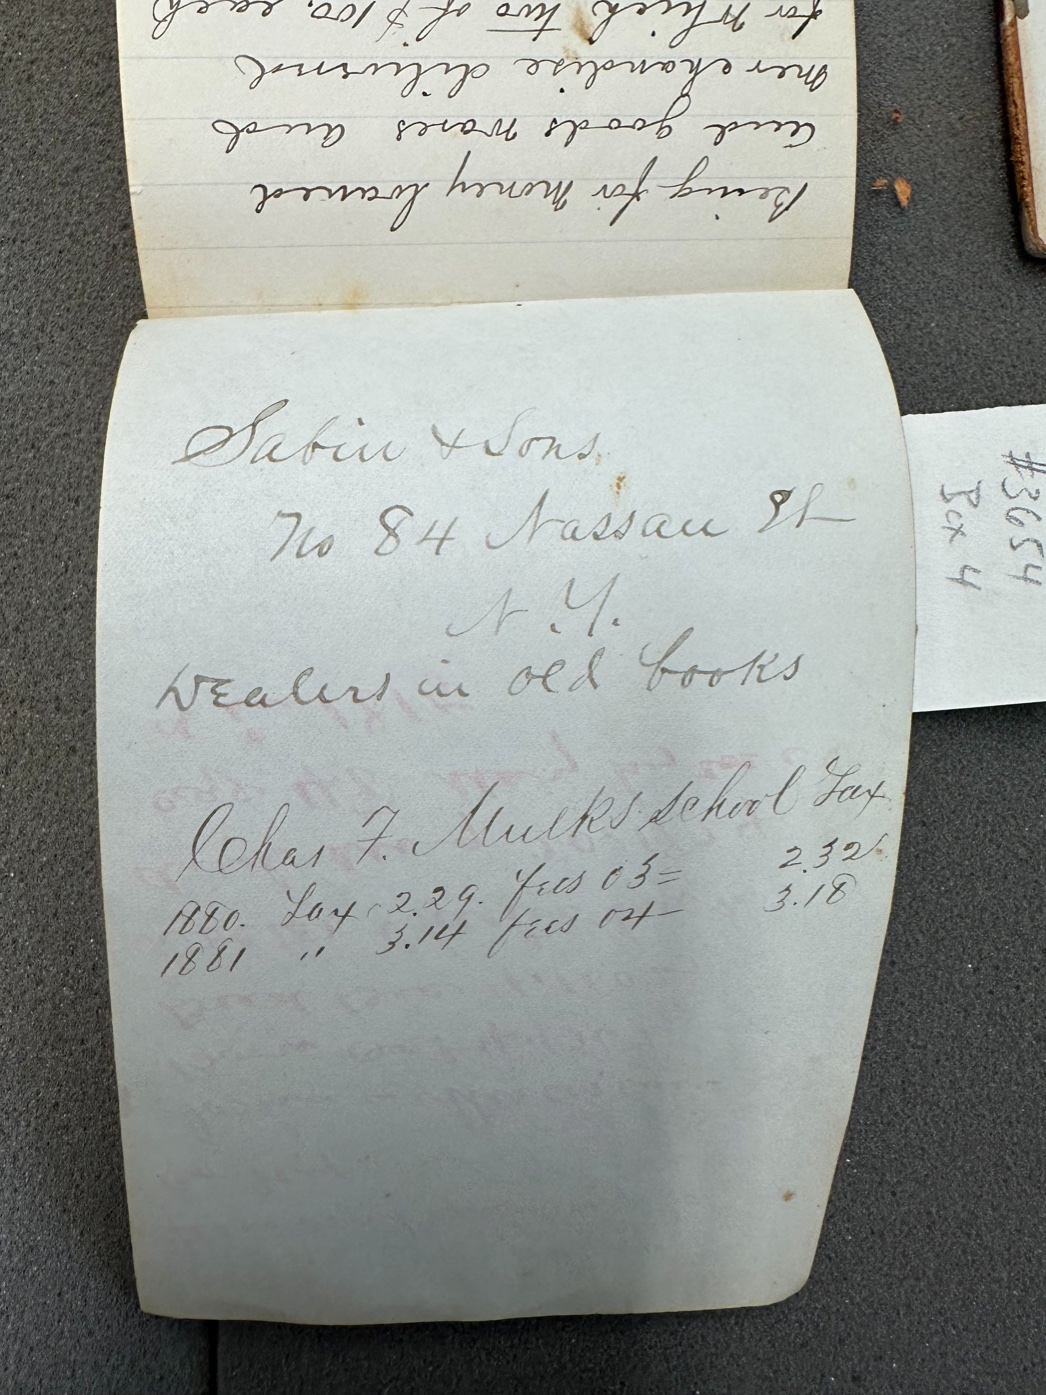 for which two of $100, each
merchandise deliverd
and goods wares and
Being for money loaned
Sabin & Sons
No 84 Nassau St
N.Y.
Dealers in old books
Chas F. Mulks school Tax
1880. Tax 2.29. fees 03= 2.32
1881 " 3.14 fees 04 3.18
#3654
Box 4